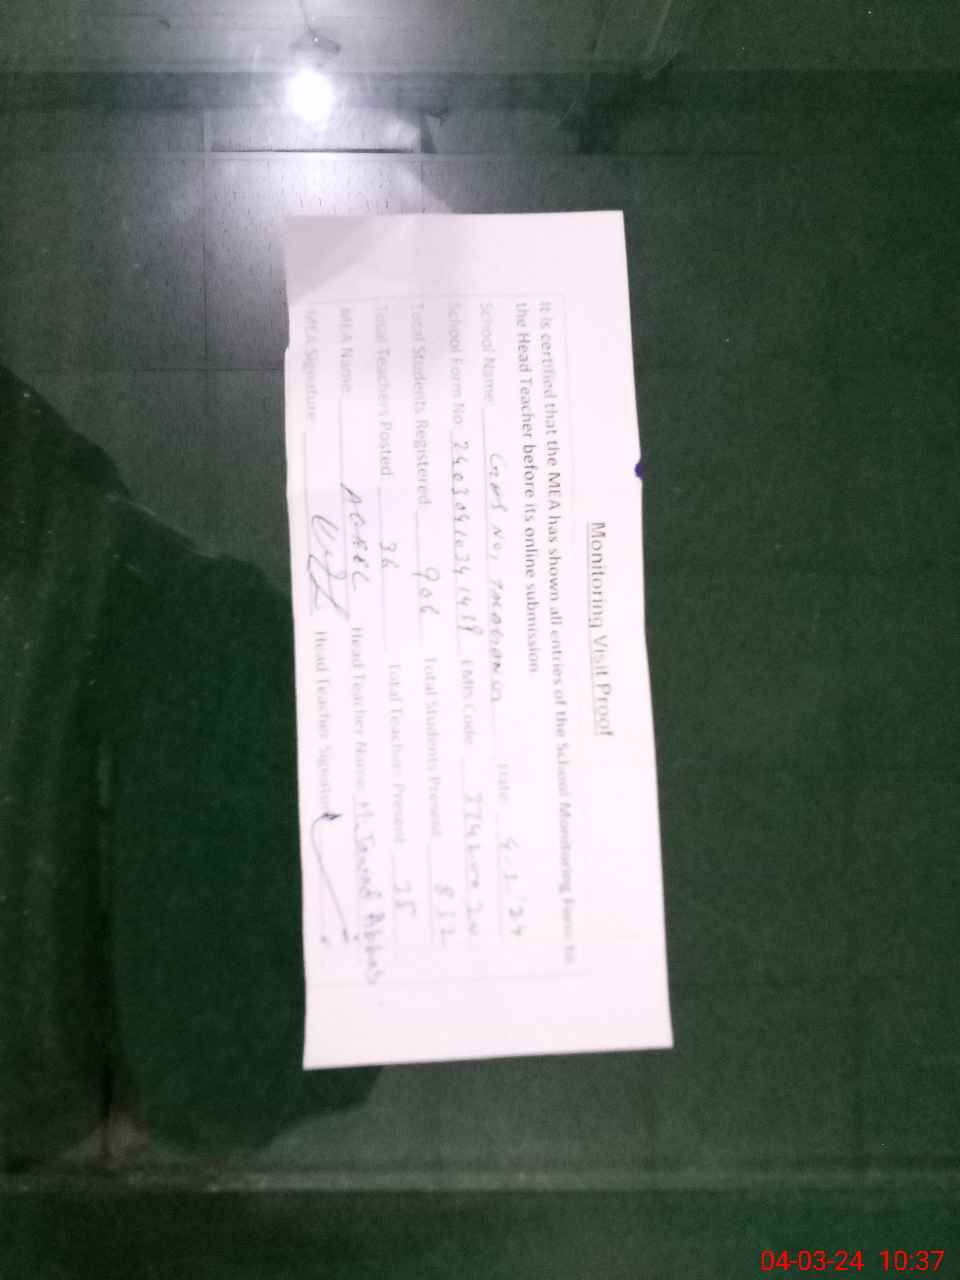 Monitoring Visit Proof
It is certified that the MEA has shown all entries of the School Monitoring Form to
the Head Teacher before its online submission.
School Name: GHS NO, 1 Date: 4-3-'24
School Form No. EMIS Code:
Total Students Registered 906 Total Students Present 832
Total Teachers Posted: 36 Total Teachers Present 35
MEA Name: Head Teacher Name M. Javed Abbas
MEA Signature: Head Teacher Signature
04-03-24 10:37